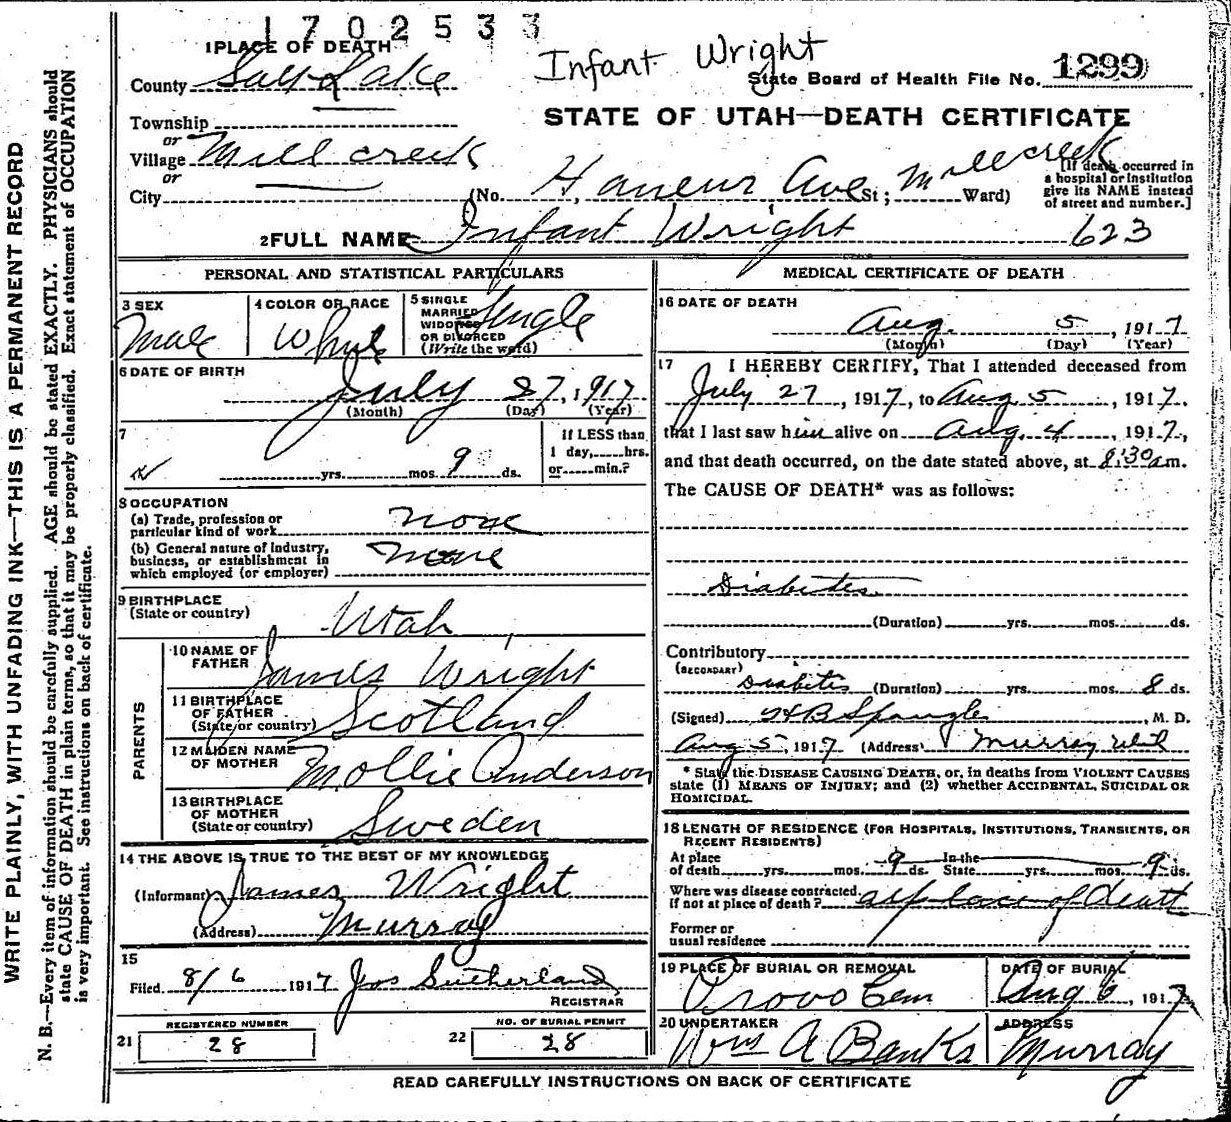 1702533
Infant Wright
1 PLACE OF DEATH
County Salt Lake
State Board of Health File No. 1299
STATE OF UTAH—DEATH CERTIFICATE
Township
or
Village Mill creek
or
City (No. Ave St; Millcreek Ward)
[If death occurred in
a hospital or institution
give its NAME instead
of street and number.]
2 FULL NAME Infant Wright 623
PERSONAL AND STATISTICAL PARTICULARS
3 SEX
Male
4 COLOR OR RACE
White
5 SINGLE
MARRIED
WIDOWED
OR DIVORCED
(Write the word)
Single
6 DATE OF BIRTH
July 27, 1917
(Month) (Day) (Year)
7
yrs. mos. 9 ds.
If LESS than
1 day, hrs.
or min.?
8 OCCUPATION
(a) Trade, profession or
particular kind of work none
(b) General nature of industry,
business, or establishment in
which employed (or employer) none
9 BIRTHPLACE
(State or country) Utah
PARENTS
10 NAME OF
FATHER James Wright
11 BIRTHPLACE
OF FATHER
(State or country) Scotland
12 MAIDEN NAME
OF MOTHER Mollie Anderson
13 BIRTHPLACE
OF MOTHER
(State or country) Sweden
14 THE ABOVE IS TRUE TO THE BEST OF MY KNOWLEDGE
(Informant) James Wright
(Address) Murray
15
Filed 8/6 1917 Jos Sutherland
REGISTRAR
REGISTERED NUMBER
21 28
NO. OF BURIAL PERMIT
22 28
MEDICAL CERTIFICATE OF DEATH
16 DATE OF DEATH
Aug. 5, 1917
(Month) (Day) (Year)
17 I HEREBY CERTIFY, That I attended deceased from
July 27, 1917, to Aug. 5, 1917,
that I last saw him alive on Aug. 4, 1917,
and that death occurred, on the date stated above, at 8:30 am.
The CAUSE OF DEATH* was as follows:
Diabetes
(Duration) yrs. mos. ds.
Contributory
(SECONDARY)
Diabetes (Duration) yrs. mos. 8 ds.
(Signed) H B Spangler, M. D.
Aug 5, 1917 (Address) Murray Utah
* State the DISEASE CAUSING DEATH, or, in deaths from VIOLENT CAUSES
state (1) MEANS OF INJURY; and (2) whether ACCIDENTAL, SUICIDAL OR
HOMICIDAL.
18 LENGTH OF RESIDENCE (FOR HOSPITALS, INSTITUTIONS, TRANSIENTS, OR
RECENT RESIDENTS)
At place
of death yrs. mos. 9 ds. In the State yrs. mos. 9 ds.
Where was disease contracted,
if not at place of death? at place of death
Former or
usual residence
19 PLACE OF BURIAL OR REMOVAL
Provo Cem
DATE OF BURIAL
Aug 6, 1917
20 UNDERTAKER
Wm A Banks
ADDRESS
Murray
READ CAREFULLY INSTRUCTIONS ON BACK OF CERTIFICATE
WRITE PLAINLY, WITH UNFADING INK—THIS IS A PERMANENT RECORD
N. B.—Every item of information should be carefully supplied. AGE should be stated EXACTLY. PHYSICIANS should
state CAUSE OF DEATH in plain terms, so that it may be properly classified. Exact statement of OCCUPATION
is very important. See instructions on back of certificate.